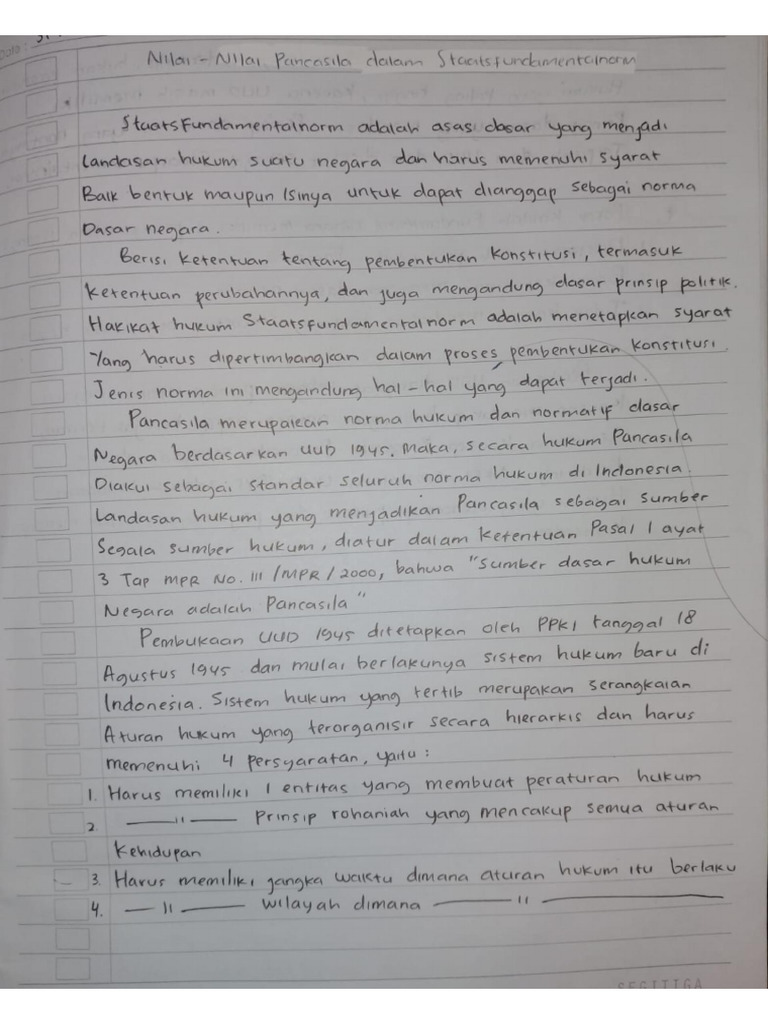 Nilai - Nilai Pancasila dalam Staatsfundamentalnorm
Staatsfundamentalnorm adalah asas dasar yang menjadi
Landasan hukum suatu negara dan harus memenuhi syarat
Baik bentuk maupun isinya untuk dapat dianggap sebagai norma
Dasar negara.
Berisi ketentuan tentang pembentukan konstitusi, termasuk
ketentuan perubahannya, dan juga mengandung dasar prinsip politik.
Hakikat hukum Staatsfundamentalnorm adalah menetapkan syarat
Yang harus dipertimbangkan dalam proses pembentukan konstitusi.
Jenis norma ini mengandung hal-hal yang dapat terjadi.
Pancasila merupakan norma hukum dan normatif dasar
Negara berdasarkan UUD 1945. Maka, secara hukum Pancasila
Diakui sebagai standar seluruh norma hukum di Indonesia.
Landasan hukum yang menjadikan Pancasila sebagai sumber
Segala sumber hukum, diatur dalam ketentuan Pasal 1 ayat
3 Tap MPR No. III/MPR/2000, bahwa "sumber dasar hukum
Negara adalah Pancasila"
Pembukaan UUD 1945 ditetapkan oleh PPKI tanggal 18
Agustus 1945 dan mulai berlakunya sistem hukum baru di
Indonesia. Sistem hukum yang tertib merupakan serangkaian
Aturan hukum yang terorganisir secara hierarkis dan harus
memenuhi 4 persyaratan, yaitu:
1. Harus memiliki 1 entitas yang membuat peraturan hukum
2. — " — Prinsip rohaniah yang mencakup semua aturan
Kehidupan
3. Harus memiliki jangka waktu dimana aturan hukum itu berlaku
4. — " — wilayah dimana — " —
SEGITIGA